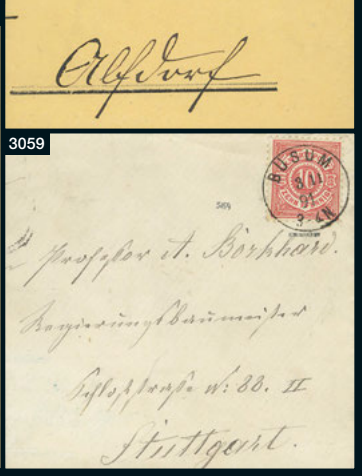 Alfdorf
3059
BÜSUM
3 11
91
3-4N
10
ZEHN PFENNIG
Professor A. Borkhard.
Regierungsbaumeister
Schloßstraße N: 88. II
Stuttgart.